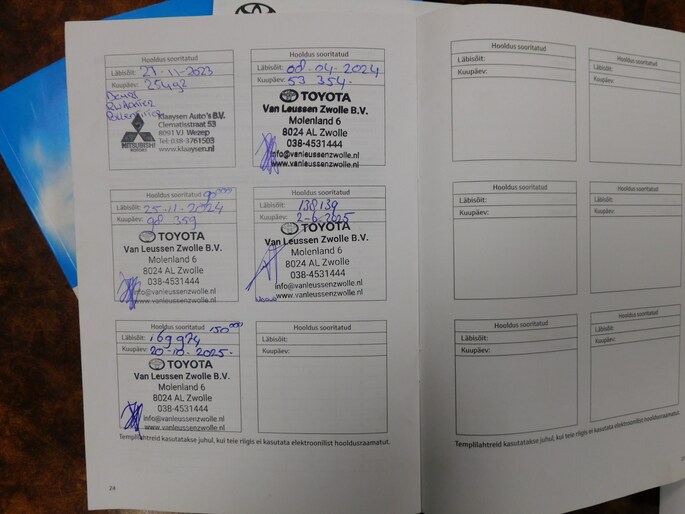 Hooldus sooritatud
Läbisõit: 27-11-2023
Kuupäev: 25492
Klaaysen Auto's B.V.
Clematisstraat 53
8091 VJ Wezep
Tel: 038-3761503
www.klaaysen.nl
MITSUBISHI
MOTORS
Hooldus sooritatud
Läbisõit: 08-04-2024
Kuupäev: 53 354.
TOYOTA
Van Leussen Zwolle B.V.
Molenland 6
8024 AL Zwolle
038-4531444
info@vanleussenzwolle.nl
www.vanleussenzwolle.nl
Hooldus sooritatud 90000
Läbisõit: 25-11-2024
Kuupäev: 98 359
TOYOTA
Van Leussen Zwolle B.V.
Molenland 6
8024 AL Zwolle
038-4531444
info@vanleussenzwolle.nl
www.vanleussenzwolle.nl
Hooldus sooritatud
Läbisõit: 138139
Kuupäev: 2-6-2025
TOYOTA
Van Leussen Zwolle B.V.
Molenland 6
8024 AL Zwolle
038-4531444
info@vanleussenzwolle.nl
www.vanleussenzwolle.nl
Hooldus sooritatud 150000
Läbisõit: 169974
Kuupäev: 20-10-2025.
TOYOTA
Van Leussen Zwolle B.V.
Molenland 6
8024 AL Zwolle
038-4531444
info@vanleussenzwolle.nl
www.vanleussenzwolle.nl
Hooldus sooritatud
Läbisõit:
Kuupäev:
Templilahtreid kasutatakse juhul, kui teie riigis ei kasutata elektroonilist hooldusraamatut.
24
Hooldus sooritatud
Läbisõit:
Kuupäev:
Hooldus sooritatud
Läbisõit:
Kuupäev:
Hooldus sooritatud
Läbisõit:
Kuupäev:
Hooldus sooritatud
Läbisõit:
Kuupäev:
Hooldus sooritatud
Läbisõit:
Kuupäev:
Hooldus sooritatud
Läbisõit:
Kuupäev:
Templilahtreid kasutatakse juhul, kui teie riigis ei kasutata elektroonilist hooldusraamatut.